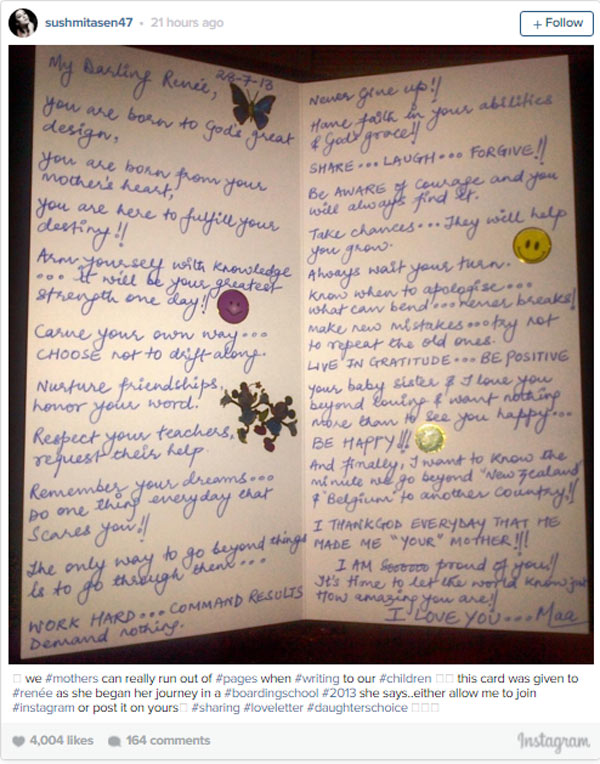 sushmitasen47 • 21 hours ago
+ Follow
28-7-13
My Darling Renée,
you are born to God's great
design,
you are born from your
mother's heart,
you are here to fulfill your
destiny!!
Arm yourself with knowledge
... it will be your greatest
strength one day!!
Carve your own way...
CHOOSE not to drift along.
Nurture friendships,
honor your word.
Respect your teachers,
request their help.
Remember your dreams...
Do one thing everyday that
Scares you!!
The only way to go beyond things
is to go through them...
WORK HARD... COMMAND RESULTS
Demand nothing.
Never give up!!
Have faith in your abilities
& God's grace!!
SHARE... LAUGH... FORGIVE!!
Be AWARE of courage and you
will always find it.
Take chances... They will help
you grow.
Always wait your turn.
Know when to apologise...
what can bend... never breaks!
make new mistakes... try not
to repeat the old ones.
LIVE IN GRATITUDE... BE POSITIVE
your baby sister & I love you
beyond loving & want nothing
more than to see you happy...
BE HAPPY!!!
And finally, I want to know the
minute we go beyond "New Zealand"
& "Belgium" to another country!!
I THANK GOD EVERYDAY THAT HE
MADE ME "YOUR" MOTHER!!!
I AM Soooooo proud of you!!
It's time to let the world know just
How amazing you are!!
I LOVE YOU... Maa
we #mothers can really run out of #pages when #writing to our #children this card was given to
#renée as she began her journey in a #boardingschool #2013 she says..either allow me to join
#instagram or post it on yours #sharing #loveletter #daughterschoice
4,004 likes 164 comments
Instagram